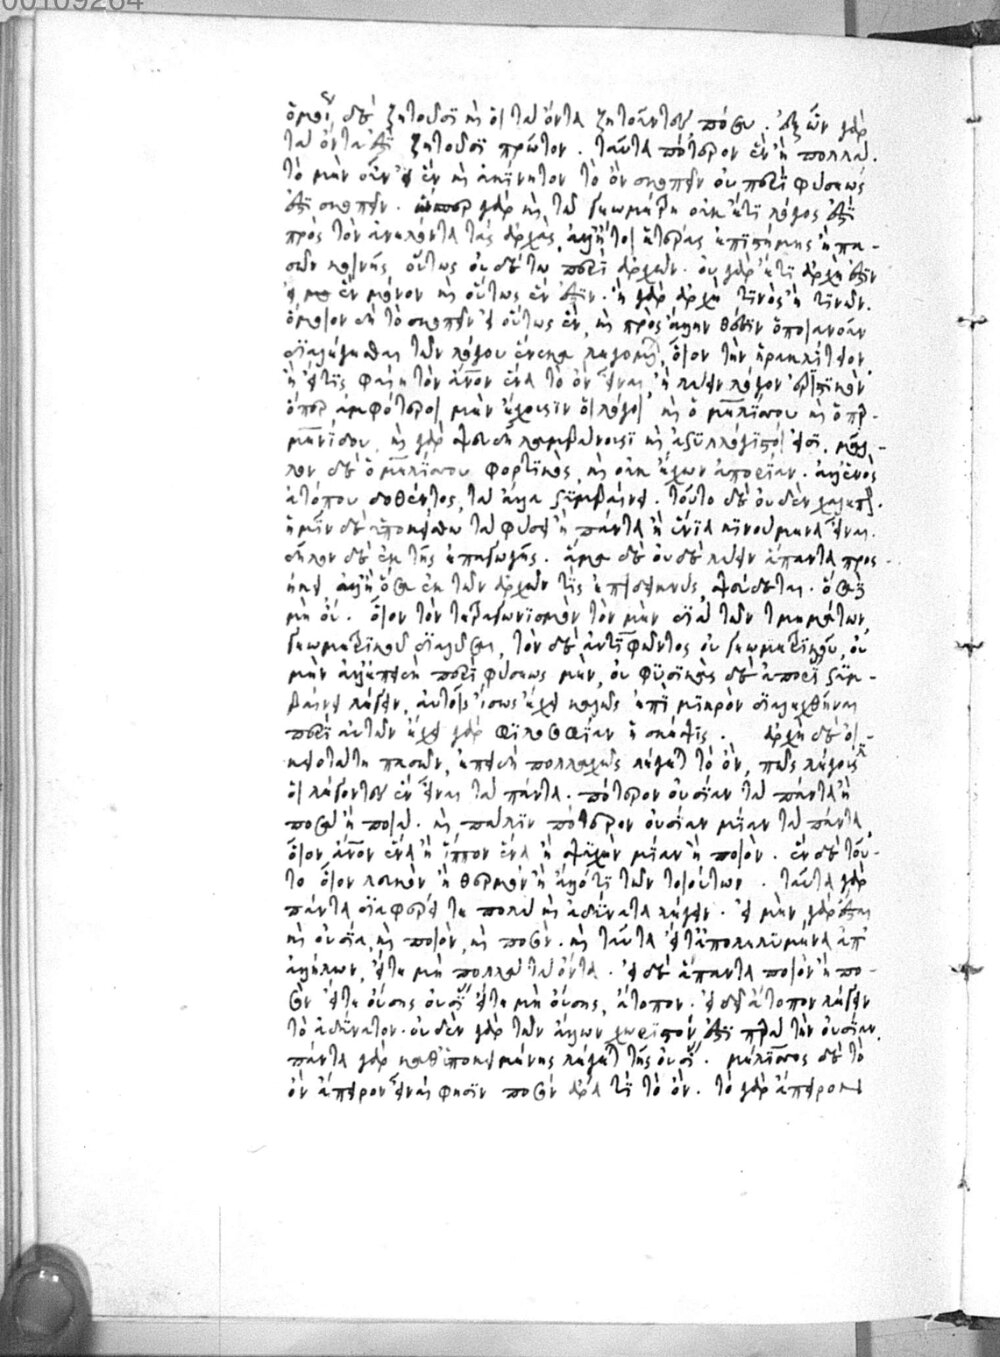 ὁμοί δὲ ζητοῦσι καὶ οἱ τὰ ὄντα ζητοῦντες πόσα. ἐξ ὧν γὰρ
τὰ ὄντα ἐστὶ ζητοῦσι πρῶτον. ταῦτα πότερον ἓν ἢ πολλά.
τὸ μὲν οὖν εἰ ἓν καὶ ἀκίνητον τὸ ὂν σκοπεῖν οὐ περὶ φύσεώς
ἐστι σκοπεῖν. ὥσπερ γὰρ καὶ τῷ γεωμέτρῃ οὐκέτι λόγος ἐστὶ
πρὸς τὸν ἀνελόντα τὰς ἀρχὰς, ἀλλ' ἤτοι ἑτέρας ἐπιστήμης ἢ πα-
σῶν κοινῆς, οὕτως οὐδὲ τῷ περὶ ἀρχῶν. οὐ γὰρ ἔτι ἀρχή ἐστιν
εἰ ἓν μόνον καὶ οὕτως ἕν ἐστιν. ἡ γὰρ ἀρχὴ τινὸς ἢ τινῶν.
ὅμοιον δὴ τὸ σκοπεῖν εἰ οὕτως ἓν, καὶ πρὸς ἄλλην θέσιν ὁποιανοῦν
διαλέγεσθαι τῶν λόγου ἕνεκα λεγομένων, οἷον τὴν ἡρακλείτειον,
ἢ εἴ τις φαίη τὸν ἄνον ἕνα τὸ ὂν εἶναι, ἢ λύειν λόγον ἐριστικὸν
ὅπερ ἀμφότεροι μὲν ἔχουσιν οἱ λόγοι καὶ ὁ μελίσσου καὶ ὁ παρ-
μενίδου, καὶ γὰρ ψευδῆ λαμβάνουσι καὶ ἀσυλλόγιστοί εἰσι. μᾶλ-
λον δὲ ὁ μελίσσου φορτικὸς, καὶ οὐκ ἔχων ἀπορίαν. ἀλλ' ἑνὸς
ἀτόπου δοθέντος, τὰ ἄλλα συμβαίνει. τοῦτο δὲ οὐδὲν χαλεπόν.
ἡμῖν δὲ ὑποκείσθω τὰ φύσει ἢ πάντα ἢ ἔνια κινούμενα εἶναι.
δῆλον δὲ ἐκ τῆς ἐπαγωγῆς. ἅμα δὲ οὐδὲ λύειν ἅπαντα προς-
ήκει, ἀλλ' ἢ ὅσα ἐκ τῶν ἀρχῶν τις ἐπιδεικνὺς, ψεύδεται. ὅσα δὲ
μὴ οὔ. οἷον τὸν τετραγωνισμὸν τὸν μὲν διὰ τῶν τμημάτων,
γεωμετρικοῦ διαλῦσαι, τὸν δὲ ἀντιφῶντος οὐ γεωμετρικοῦ, οὐ
μὴν ἀλλ' ἐπειδὴ περὶ φύσεως μὲν, οὐ φυσικὰς δὲ ἀπορίας συμ-
βαίνει λέγειν, αὐτοῖς ἴσως ἔχει καλῶς ἐπὶ μικρὸν διαλεχθῆναι
περὶ αὐτῶν ἔχει γὰρ φιλοσοφίαν ἡ σκέψις. ἀρχὴ δὲ οἰ-
κειοτάτη πασῶν, ἐπειδὴ πολλαχῶς λέγεται τὸ ὂν, πῶς λέγουσιν
οἱ λέγοντες ἓν εἶναι τὰ πάντα. πότερον οὐσίαν τὰ πάντα ἢ
ποσὰ ἢ ποιά. καὶ πάλιν πότερον οὐσίαν μίαν τὰ πάντα,
οἷον ἄνον ἕνα ἢ ἵππον ἕνα ἢ ψυχὴν μίαν ἢ ποιὸν. ἓν δὲ τοῦ-
το οἷον λευκὸν, ἢ θερμὸν ἢ ἄλλό τι τῶν τοιούτων. ταῦτα γὰρ
πάντα διαφέρει τε πολὺ καὶ ἀδύνατα λέγειν. εἰ μὲν γὰρ ἔσται
καὶ οὐσία, καὶ ποιὸν, καὶ ποσὸν. καὶ ταῦτα εἴτ' ἀπολελυμένα ἀπ'
ἀλλήλων, εἴτε μὴ πολλὰ τὰ ὄντα. εἰ δὲ ἅπαντα ποιὸν ἢ πο-
σὸν εἴτε οὔσης οὐσίας εἴτε μὴ οὔσης, ἄτοπον. εἰ δεῖ ἄτοπον λέγειν
τὸ ἀδύνατον. οὐδὲν γὰρ τῶν ἄλλων χωριστόν ἐστι παρὰ τὴν οὐσίαν.
πάντα γὰρ καθ' ὑποκειμένης λέγεται τῆς οὐσίας. μέλισσος δὲ τὸ
ὂν ἄπειρον εἶναί φησιν ποσὸν ἄρα τι τὸ ὄν. τὸ γὰρ ἄπειρον